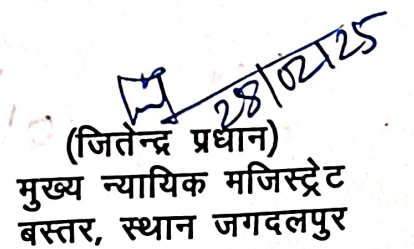 28/02/25
(जितेन्द्र प्रधान)
मुख्य न्यायिक मजिस्ट्रेट
बस्तर, स्थान जगदलपुर